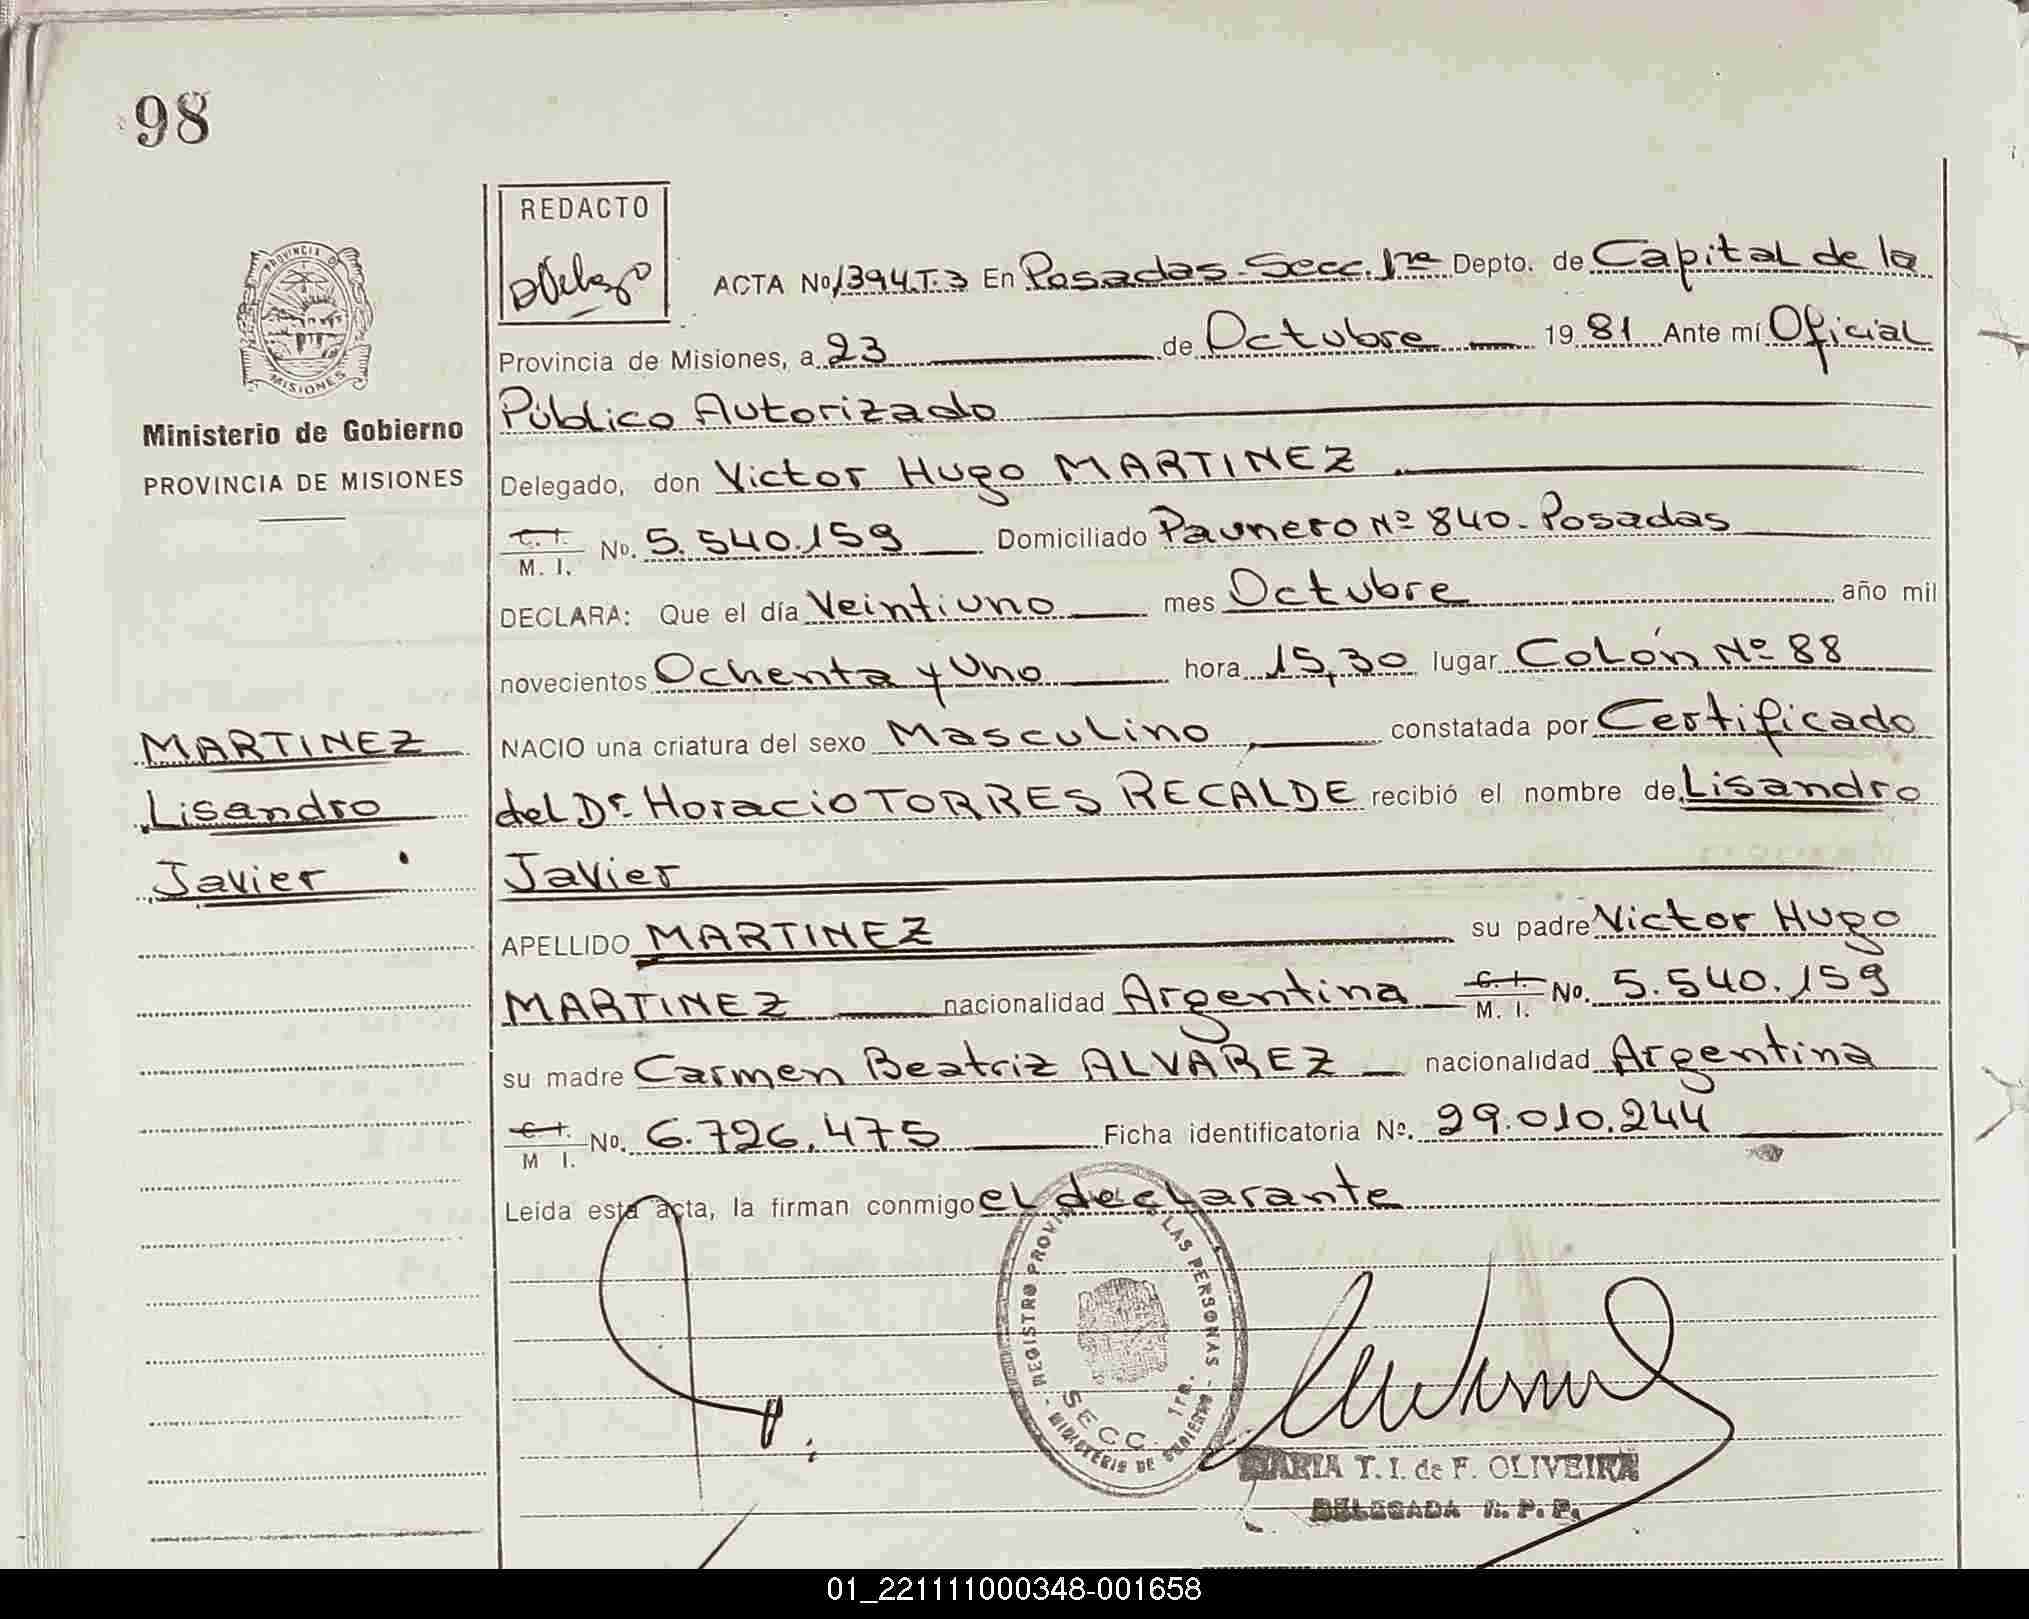 98
REDACTO
PROVINCIA D
MISIONES
Ministerio de Gobierno
PROVINCIA DE MISIONES
MARTINEZ
Lisandro
Javier
ACTA No 1394.T.3 En Posadas-Secc. 1ra Depto. de Capital de la
Provincia de Misiones, a 23 de Octubre 19 81 Ante mí Oficial
Público Autorizado
Delegado, don Victor Hugo MARTINEZ
C. I. M. I. No. 5.540.159 Domiciliado Paunero Nº 840. Posadas
DECLARA: Que el día Veintiuno mes Octubre año mil
novecientos Ochenta y Uno hora 15,30 lugar Colón Nº 88
NACIO una criatura del sexo Masculino constatada por Certificado
del Dr. Horacio TORRES RECALDE recibió el nombre de Lisandro
Javier
APELLIDO MARTINEZ su padre Victor Hugo
MARTINEZ nacionalidad Argentina C. I. M. I. No. 5.540.159
su madre Carmen Beatriz ALVAREZ nacionalidad Argentina
C. I. M I. No. 6.726.475 Ficha identificatoria Nº. 29.010.244
Leida esta acta, la firman conmigo el declarante
REGISTRO PROVIN LAS PERSONAS
- MINISTERIO DE GOBIERNO -
SECC. 1ra.
MARIA T. I. de F. OLIVEIRA
DELEGADA R. P. P.
01_221111000348-001658